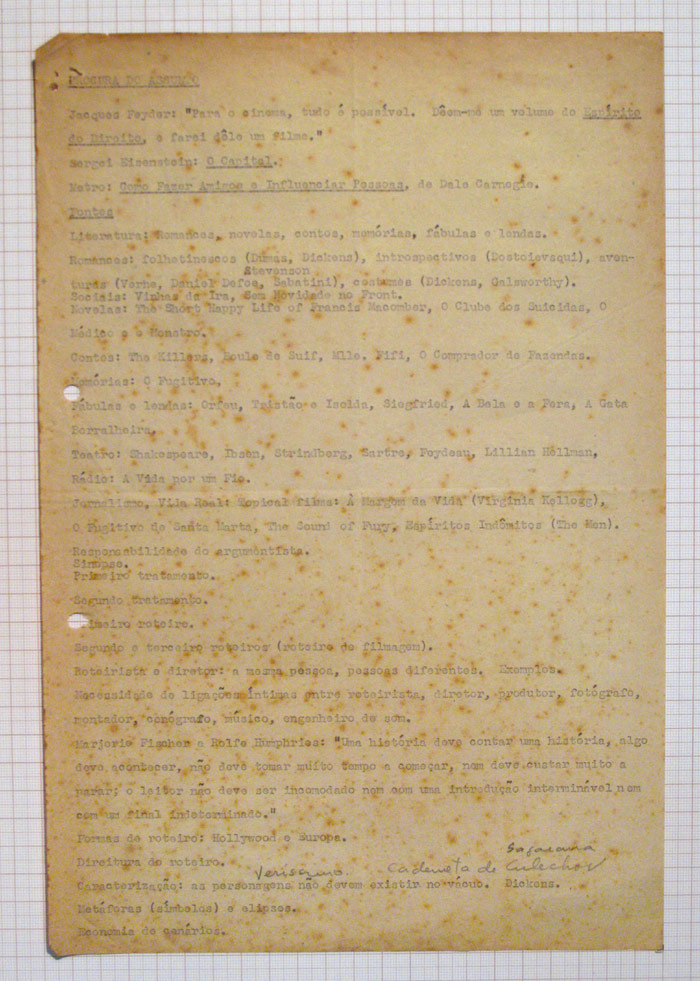 PROCURA DO ASSUNTO
Jacques Feyder: "Para o cinema, tudo é possível. Dêem-me um volume do Espírito
do Direito, e farei dêle um filme."
Sergei Eisenstein: O Capital.
Metro: Como Fazer Amigos e Influenciar Pessoas, de Dale Carnegie.
Fontes
Literatura: Romances, novelas, contos, memórias, fábulas e lendas.
Romances: folhetinescos (Dumas, Dickens), introspectivos (Dostoievsqui), aven-
Stevenson
turas (Verne, Daniel Defoe, Sabatini), costumes (Dickens, Galsworthy).
Sociais: Vinhas da Ira, Sem Novidade no Front.
Novelas: The Short Happy Life of Francis Macomber, O Clube dos Suicidas, O
Médico e o Monstro.
Contos: The Killers, Boule de Suif, Mlle. Fifi, O Comprador de Fazendas.
Memórias: O Fugitivo.
Fábulas e lendas: Orfeu, Tristão e Isolda, Siegfried, A Bela e a Fera, A Gata
Borralheira.
Teatro: Shakespeare, Ibsen, Strindberg, Sartre, Feydeau, Lillian Hellman,
Rádio: A Vida por um Fio.
Jornalismo, Vida Real: Topical films: À Margem da Vida (Virginia Kellogg),
O Fugitivo de Santa Marta, The Sound of Fury, Espíritos Indômitos (The Men).
Responsabilidade do argumentista.
Sinopse.
Primeiro tratamento.
Segundo tratamento.
Primeiro roteiro.
Segundo e terceiro roteiros (roteiro de filmagem).
Roteirista e diretor: a mesma pessoa, pessoas diferentes. Exemplos.
Necessidade de ligações íntimas entre roteirista, diretor, produtor, fotógrafo,
montador, cenógrafo, músico, engenheiro de som.
Marjorie Fischer e Rolfe Humphries: "Uma história deve contar uma história, algo
deve acontecer, não deve tomar muito tempo a começar, nem deve custar muito a
parar; o leitor não deve ser incomodado nem com uma introdução interminável nem
com um final indeterminado."
Formas de roteiro: Hollywood e Europa.
Direitura do roteiro.
Caderneta de
Caracterização: as personagens não devem existir no vácuo. Dickens.
Metáforas (símbolos) e elipses.
Economia de cenários.